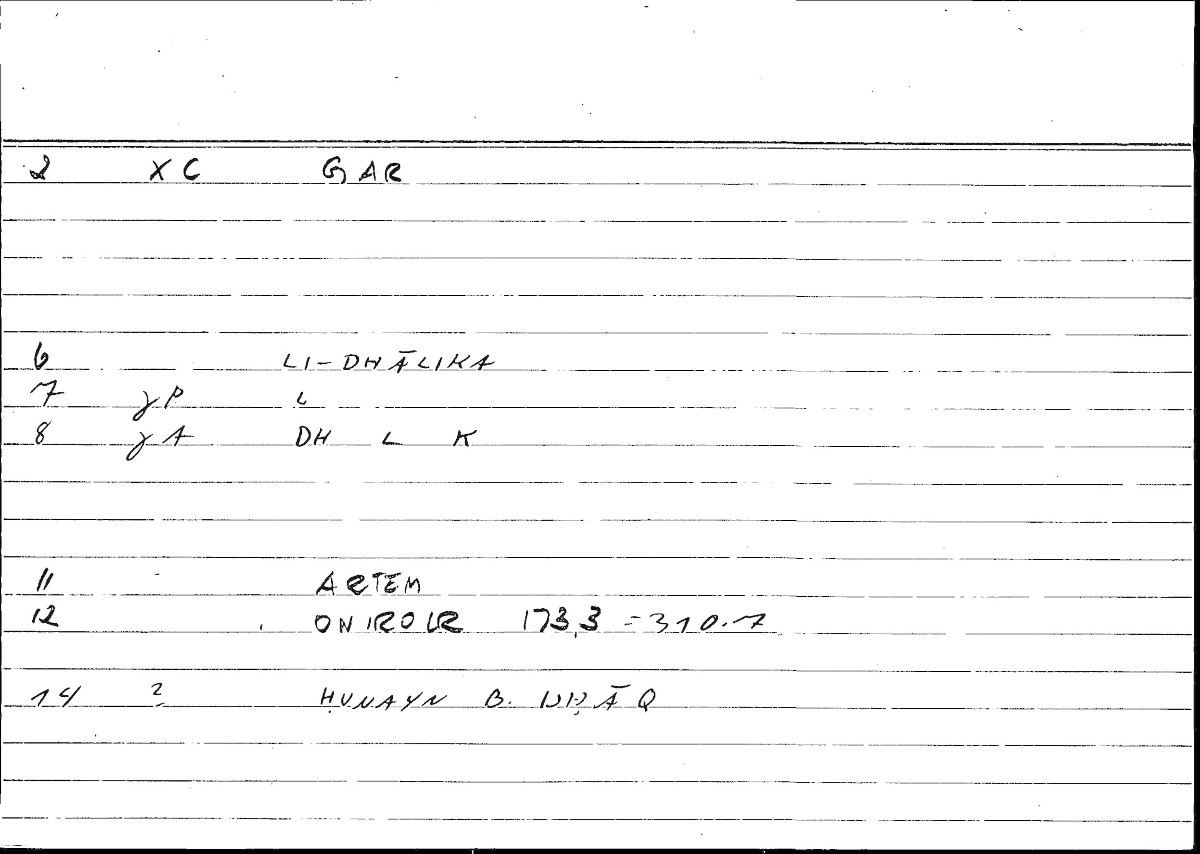 2 XC GAR
6 LI-DHĀLIKA
7 γP L
8 γA DH L K
11 - ARTEM
12 ONIROCR 173,3 = 310.7
14 2 ḤUNAYN B. ISḤĀQ